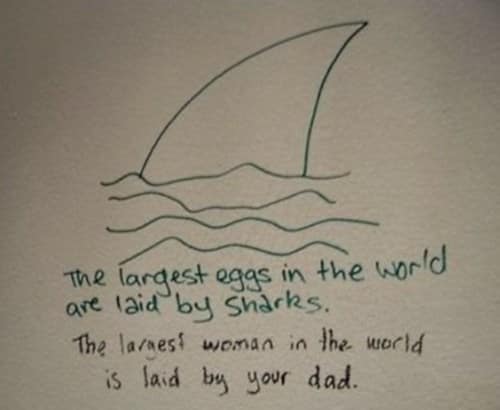 The largest eggs in the world
are laid by sharks.
The largest woman in the world
is laid by your dad.